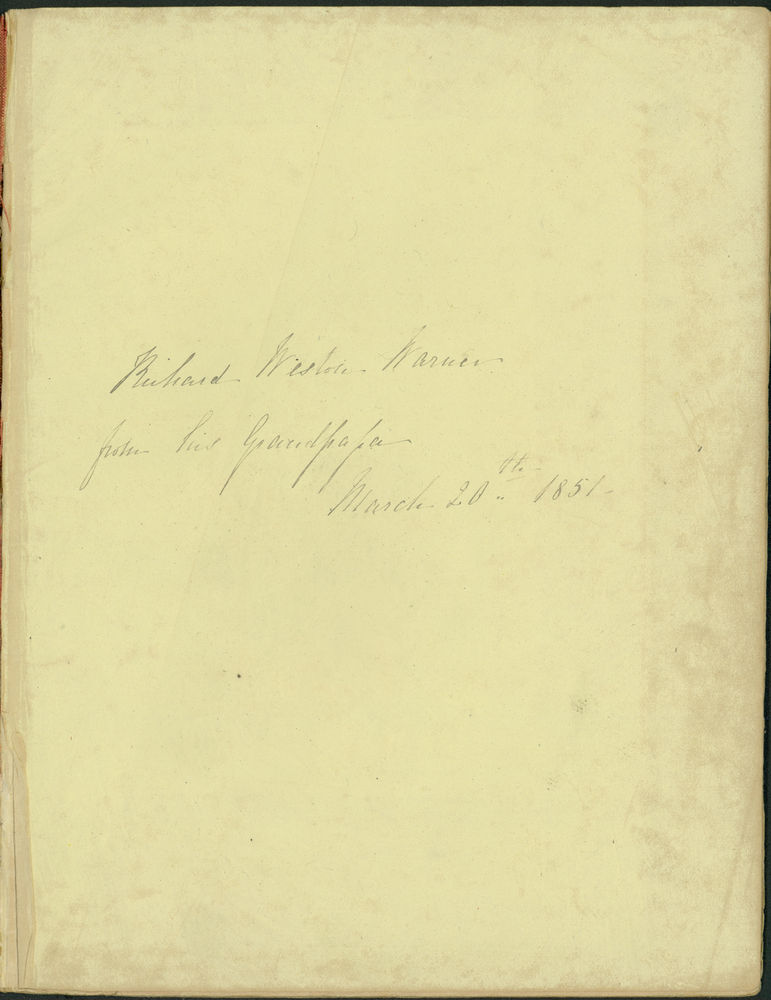 Richard Weston Warner
from his Grandpapa
March 20th 1851-